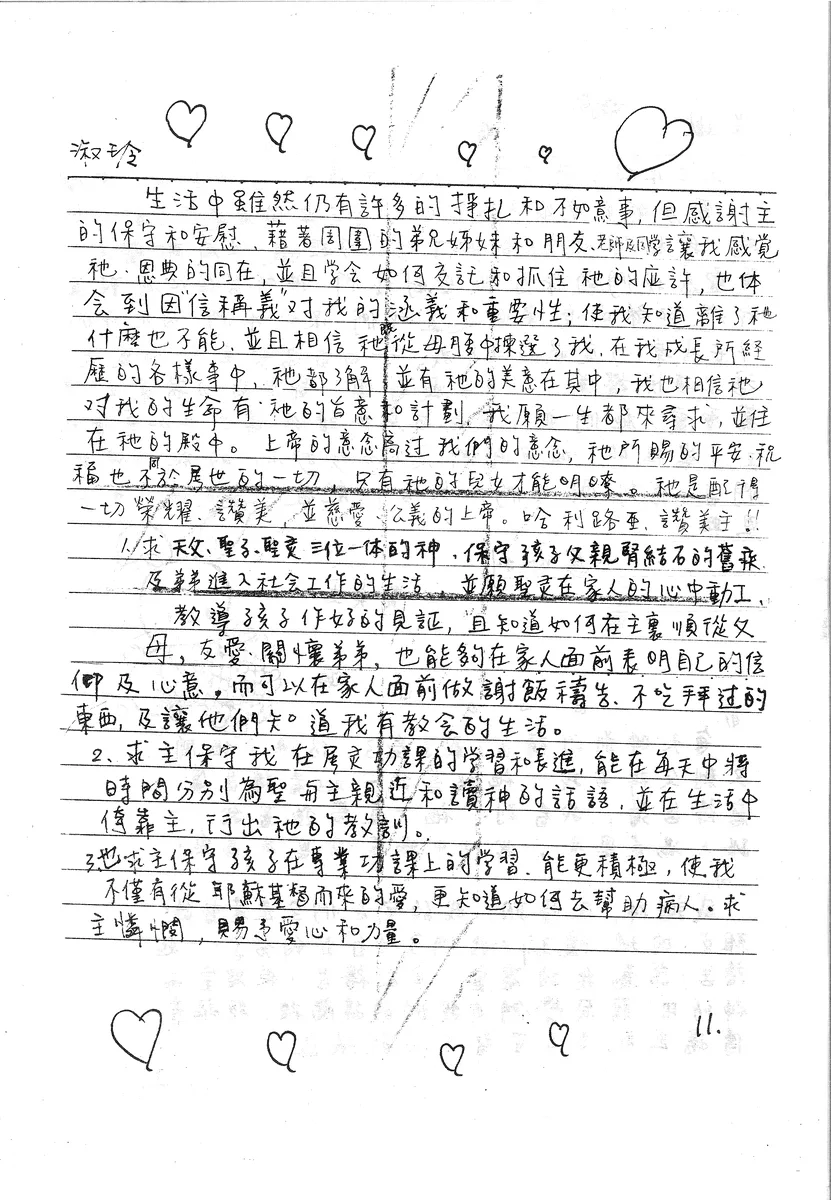 淑玲
生活中雖然仍有許多的掙扎和不如意事，但感謝主
的保守和安慰、藉著周圍的弟兄姊妹和朋友、老師及同學讓我感覺
祂‧恩典的同在，並且学会如何交託和抓住祂的應許，也体
会到因"信稱義"對我的涵義和重要性；使我知道離了祂
什麼也不能、並且相信祂從母腹中揀選了我、在我成長所經
歷的各樣事中、祂都了解 並有祂的美意在其中，我也相信祂
对我的生命有祂的旨意和計劃，我願一生都來尋求，並住
在祂的殿中。 上帝的意念高过我們的意念，祂所賜的平安‧祝
福也不同於屬世的一切，只有祂的兒女才能明瞭。祂是配得
一切榮耀、讚美，並慈愛、公義的上帝。哈利路亞、讚美主!!
1、求天父、聖子、聖灵三位一体的神、保守孩子父親腎結石的舊疾
及弟弟進入社会工作的生活，並願聖灵在家人的心中動工、
教導孩子作好的見証，且知道如何在主裏順從父
母，友愛、關懷弟弟，也能夠在家人面前表明自己的信
仰及心意。而可以在家人面前做謝飯禱告、不吃拜过的
東西，及讓他們知道我有教会的生活。
2、求主保守我在屬灵功課的学習和長進，能在每天中將
時間分別為聖与主親近和讀神的話語，並在生活中
倚靠主，行出祂的教訓。
3、也求主保守孩子在專業功課上的学習、能更積極，使我
不僅有從耶穌基督而來的愛，更知道如何去幫助病人。求
主憐憫，賜予愛心和力量。
11.